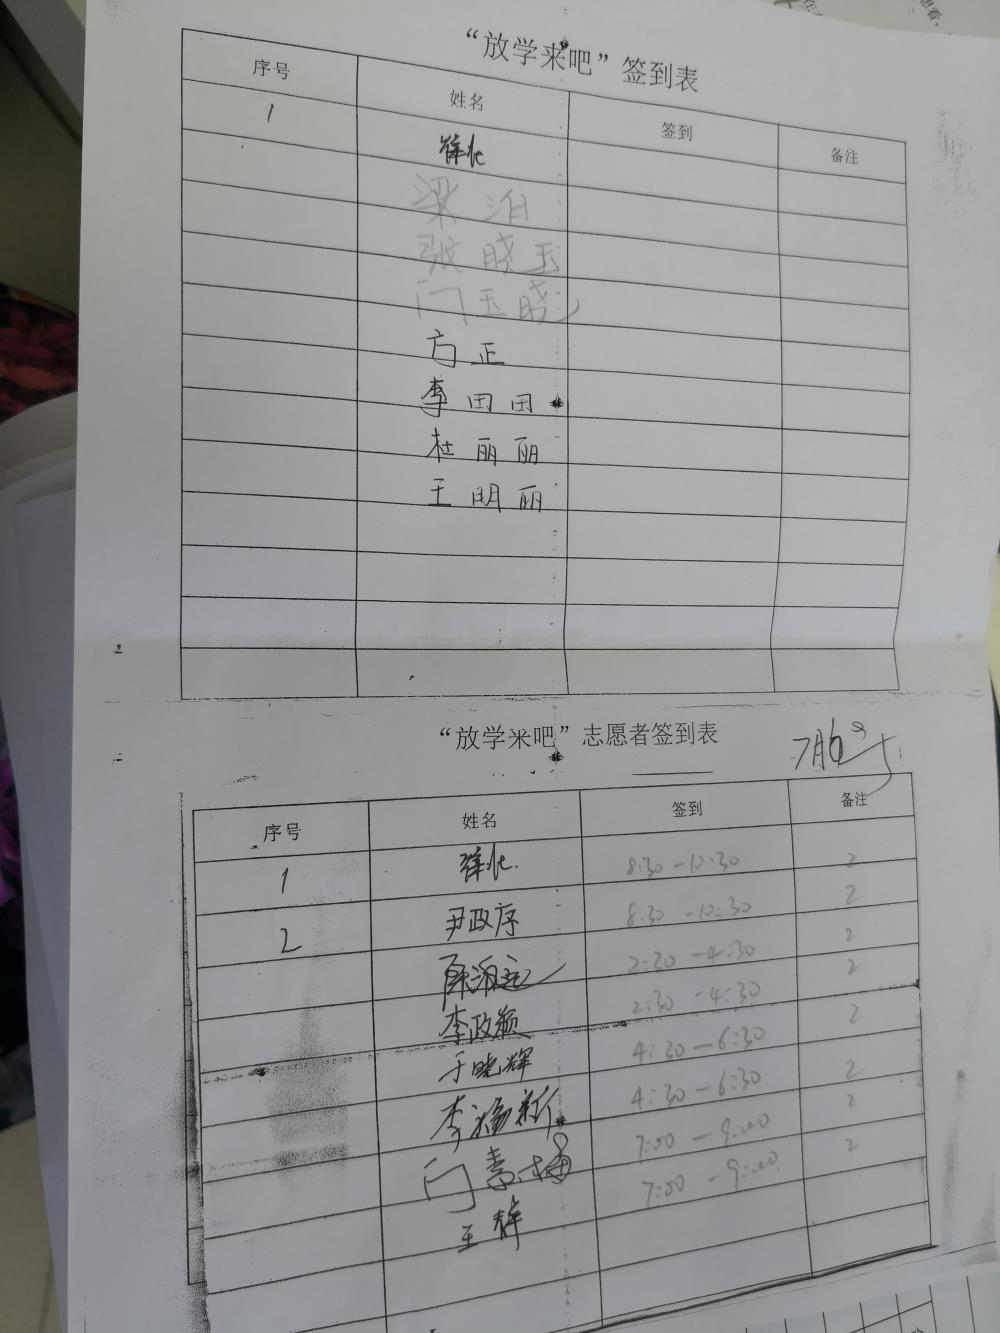 “放学来吧”签到表
序号 姓名 签到 备注
1 薛化
梁泊
张晓玉
闫玉晓
方正
李田田
杜丽丽
王明丽
“放学来吧”志愿者签到表
序号 姓名 签到 备注
1 薛化 8:30-10:30 2
2 尹政序 8:30-10:30 2
2:30-4:30 2
李政颖 2:30-4:30 2
于晓辉 4:30-6:30 2
李 新 4:30-6:30 2
7:00-9:00 2
王辉 7:00-9:00 2